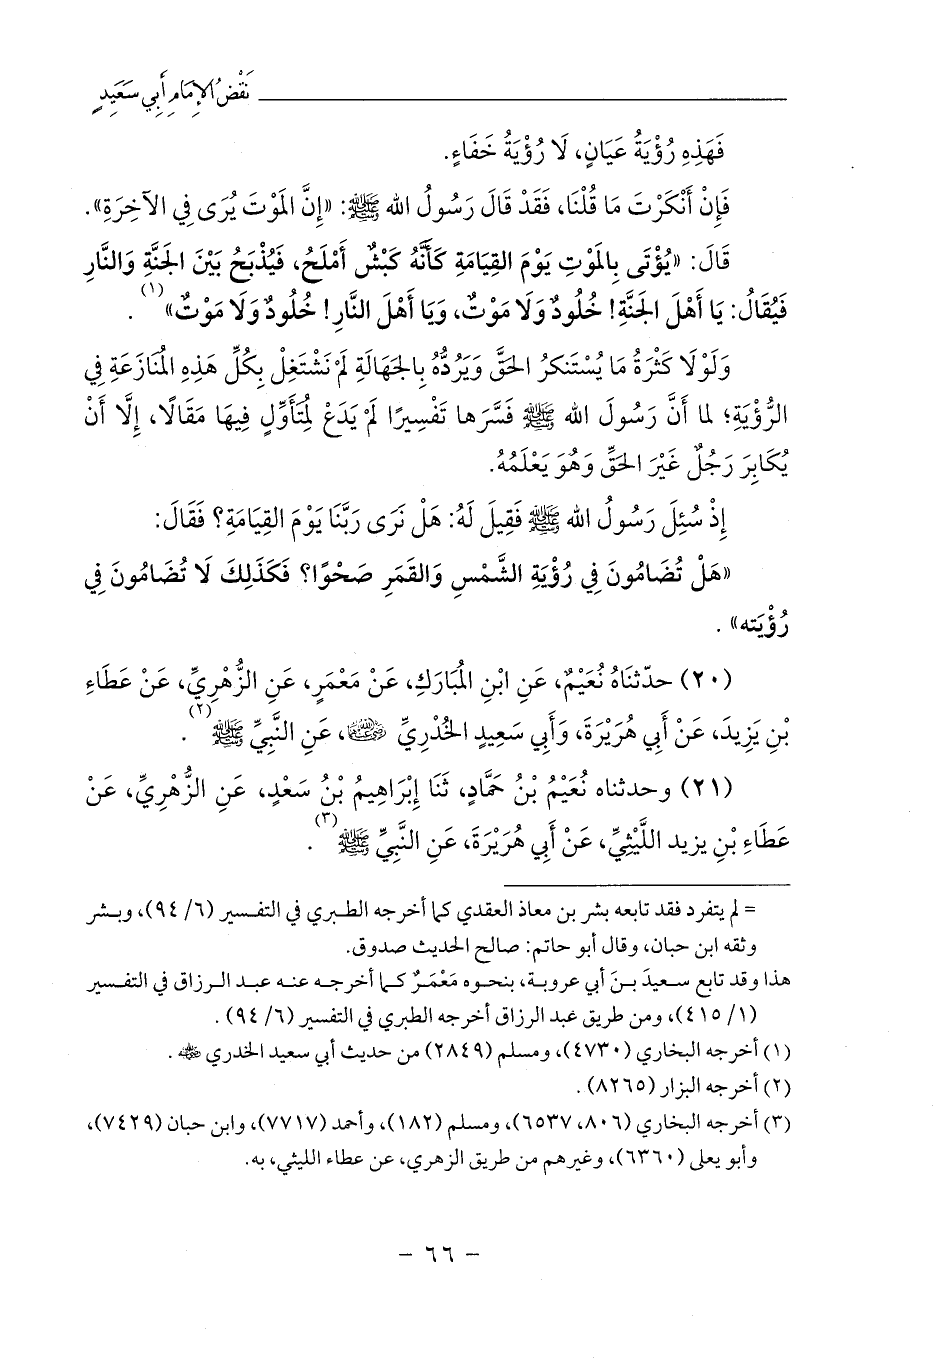 نَقْضُ الإِمَامِ أَبِي سَعِيدٍ
فَهَذِهِ رُؤْيَةُ عَيَانٍ، لَا رُؤْيَةُ خَفَاءٍ.
فَإِنْ أَنْكَرْتَ مَا قُلْنَا، فَقَدْ قَالَ رَسُولُ الله ﷺ: «إِنَّ المَوْتَ يُرَى فِي الآخِرَةِ».
قَالَ: «يُؤْتَى بِالمَوْتِ يَوْمَ القِيَامَةِ كَأَنَّهُ كَبْشٌ أَمْلَحُ، فَيُذْبَحُ بَيْنَ الجَنَّةِ وَالنَّارِ
فَيُقَالُ: يَا أَهْلَ الجَنَّةِ! خُلُودٌ وَلَا مَوْتٌ، وَيَا أَهْلَ النَّارِ! خُلُودٌ وَلَا مَوْتٌ»(١).
وَلَوْلَا كَثْرَةُ مَا يُسْتَنكرُ الحَقَّ وَيَرُدُّهُ بِالجَهَالَةِ لَمْ نَشْتَغِلْ بِكُلِّ هَذِهِ المُنَازَعَةِ فِي
الرُّؤْيَةِ؛ لما أَنَّ رَسُولَ الله ﷺ فَسَّرَها تَفْسِيرًا لَمْ يَدَعْ لِمُتَأَوِّلٍ فِيهَا مَقَالًا، إِلَّا أَنْ
يُكَابِرَ رَجُلٌ غَيْرَ الحَقِّ وَهُوَ يَعْلَمُهُ.
إِذْ سُئِلَ رَسُولُ الله ﷺ فَقِيلَ لَهُ: هَلْ نَرَى رَبَّنَا يَوْمَ القِيَامَةِ؟ فَقَالَ:
«هَلْ تُضَامُونَ فِي رُؤْيَةِ الشَّمْسِ وَالقَمَرِ صَحْوًا؟ فَكَذَلِكَ لَا تُضَامُونَ فِي
رُؤْيَته» .
(٢٠) حدّثنَاهُ نُعَيْمٌ، عَنِ ابْنِ المُبَارَكِ، عَنْ مَعْمَرٍ، عَنِ الزُّهْرِيِّ، عَنْ عَطَاءِ
بْنِ يَزِيدَ، عَنْ أَبِي هُرَيْرَةَ، وَأَبِي سَعِيدٍ الخُدْرِيِّ رضي الله عنهما، عَنِ النَّبِيِّ ﷺ(٢) .
(٢١) وحدثناه نُعَيْمُ بْنُ حَمَّادٍ، ثَنَا إِبْرَاهِيمُ بْنُ سَعْدٍ، عَنِ الزُّهْرِيِّ، عَنْ
عَطَاءِ بْنِ يزيد اللَّيْثِيِّ، عَنْ أَبِي هُرَيْرَةَ، عَنِ النَّبِيِّ ﷺ(٣) .
= لم يتفرد فقد تابعه بشر بن معاذ العقدي كما أخرجه الطبري في التفسير (٦/ ٩٤)، وبشر
وثقه ابن حبان، وقال أبو حاتم: صالح الحديث صدوق.
هذا وقد تابع سعيدَ بنَ أبي عروبة، بنحوه مَعْمَرٌ كما أخرجه عنه عبد الرزاق في التفسير
(١/ ٤١٥)، ومن طريق عبد الرزاق أخرجه الطبري في التفسير (٦/ ٩٤) .
(١) أخرجه البخاري (٤٧٣٠)، ومسلم (٢٨٤٩) من حديث أبي سعيد الخدري رضي الله عنه .
(٢) أخرجه البزار (٨٢٦٥) .
(٣) أخرجه البخاري (٨٠٦، ٦٥٣٧)، ومسلم (١٨٢)، وأحمد (٧٧١٧)، وابن حبان (٧٤٢٩)،
وأبو يعلى (٦٣٦٠)، وغيرهم من طريق الزهري، عن عطاء الليثي، به.
- ٦٦ -